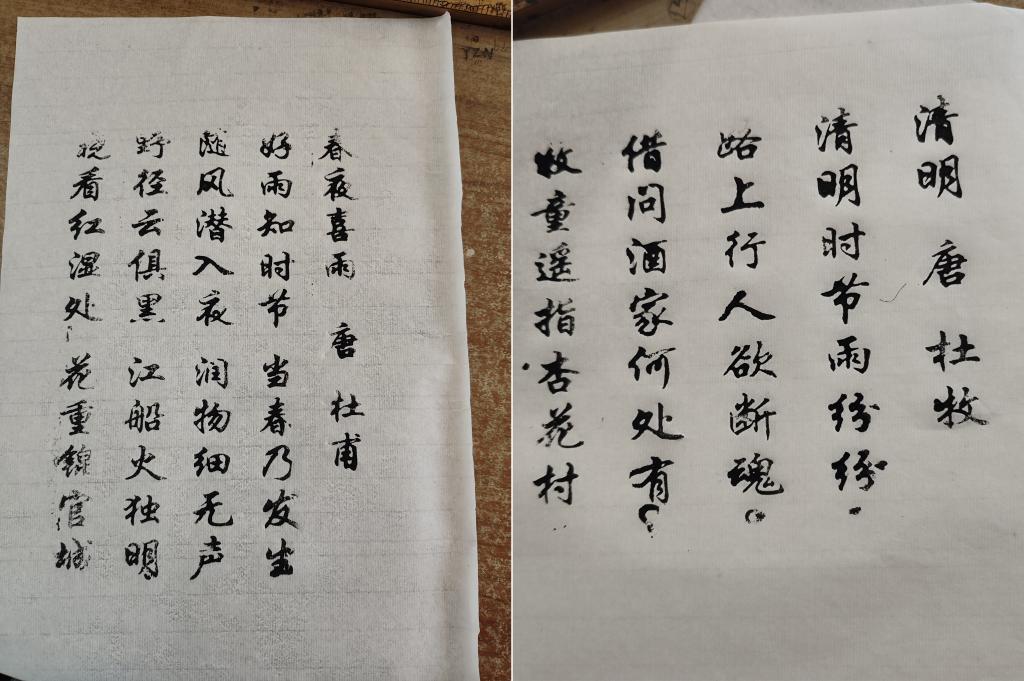 春夜喜雨 唐 杜甫
好雨知时节 当春乃发生
随风潜入夜 润物细无声
野径云俱黑 江船火独明
晓看红湿处 花重锦官城
清明 唐 杜牧
清明时节雨纷纷.
路上行人欲断魂。
借问酒家何处有?
牧童遥指杏花村